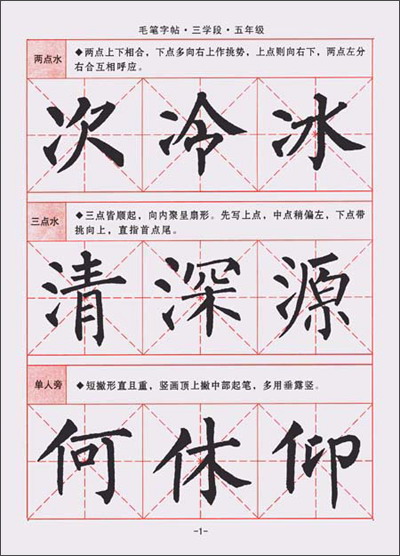 毛笔字帖·三学段·五年级
两点水
◆两点上下相合，下点多向右上作挑势，上点则向右下，两点左分
右合互相呼应。
次冷冰
三点水
◆三点皆顺起，向内聚呈扇形。先写上点，中点稍偏左，下点带
挑向上，直指首点尾。
清深源
单人旁
◆短撇形直且重，竖画顶上撇中部起笔，多用垂露竖。
何休仰
-1-